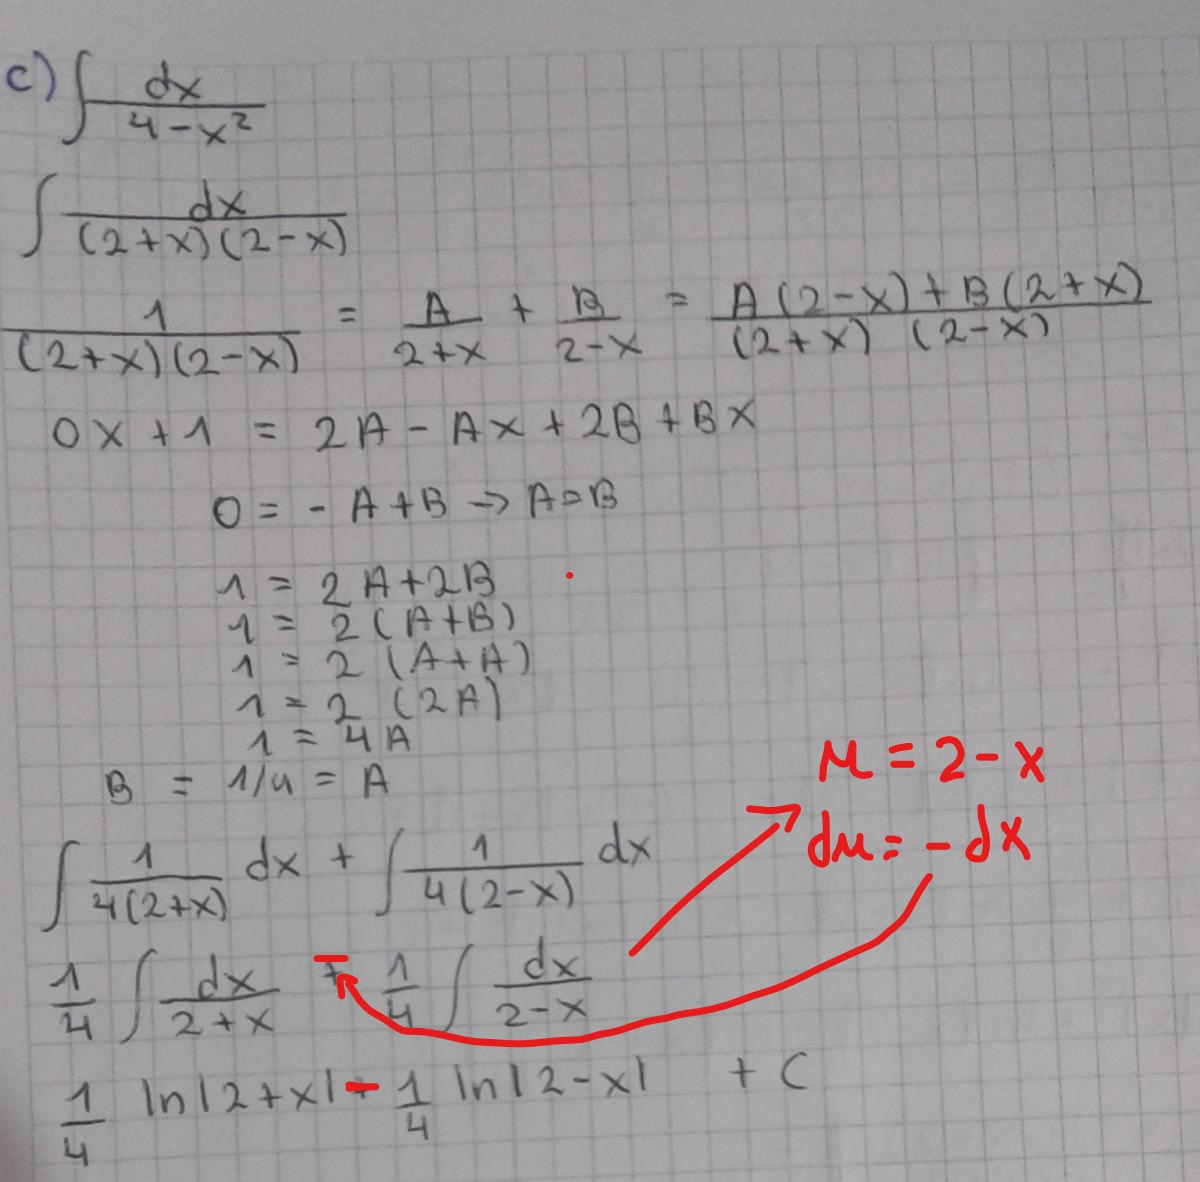 c) ∫ dx / (4 - x²)
∫ dx / ((2+x)(2-x))
1 / ((2+x)(2-x)) = A / (2+x) + B / (2-x) = (A(2-x) + B(2+x)) / ((2+x)(2-x))
0x + 1 = 2A - Ax + 2B + Bx
0 = - A + B → A = B
1 = 2A + 2B
1 = 2(A+B)
1 = 2(A+A)
1 = 2(2A)
1 = 4A
B = 1/4 = A
μ = 2 - x
du = - dx
∫ 1 / (4(2+x)) dx + ∫ 1 / (4(2-x)) dx
1/4 ∫ dx / (2+x) ∓ 1/4 ∫ dx / (2-x)
1/4 ln|2+x| - 1/4 ln|2-x| + C